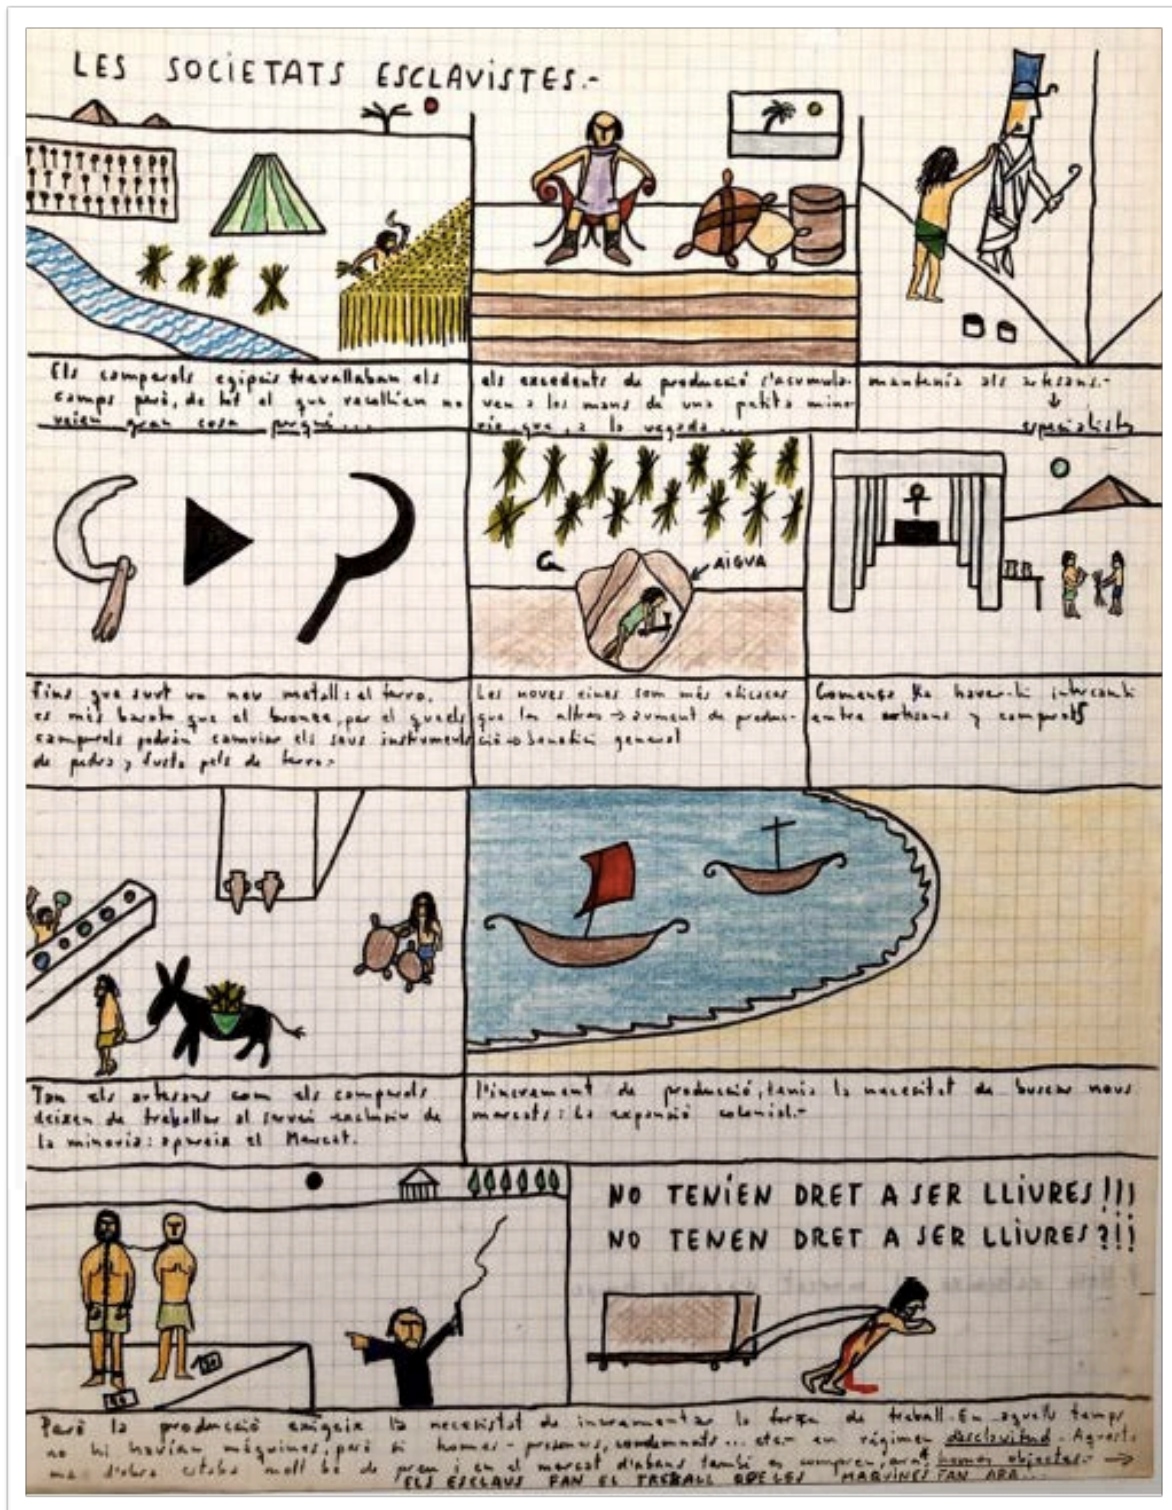 LES SOCIETATS ESCLAVISTES.-
Els camperols egipcis travallaban els
camps però, de tot el que recollien no
veien gran cosa perquè...
els excedents de producció s'acumula-
ven a les mans de una petita mino-
ria que, a la vegada...
mantenia als artesans.-
↓
especialists
AIGUA
Fins que surt un nou metall: el ferro.
es més barato que el bronze, per el quels
camperols podràn camviar els seus instruments
de pedra y fusta pels de ferro.-
Les noves eines som més eficaces
que les altres → aument de produc-
ció → benefici general
Comença ha haver-hi intercanvi
entre artesans y camperols
Tan els artesans com els camperols
deixen de treballar al servei exclusiu de
la minoria: apareix el Mercat.
l'increment de producció, tenia la necesitat de buscar nous
mercats: La expansió colonial.-
NO TENIEN DRET A SER LLIURES!!!
NO TENEN DRET A SER LLIURES?!!
Però la producció exigeix la necesistat de incrementar la força de treball. En aquells temps
no hi havian màquines, però si homes - presoners, condemnats... etc- en régimen desclavitud. Aquesta
ma d'obra estaba molt bé de preu i en el mercat d'abans també es compren, ara, homes objectes.- →
ELS ESCLAUS FAN EL TREBALL QUE LES MAQUINES FAN ARA...